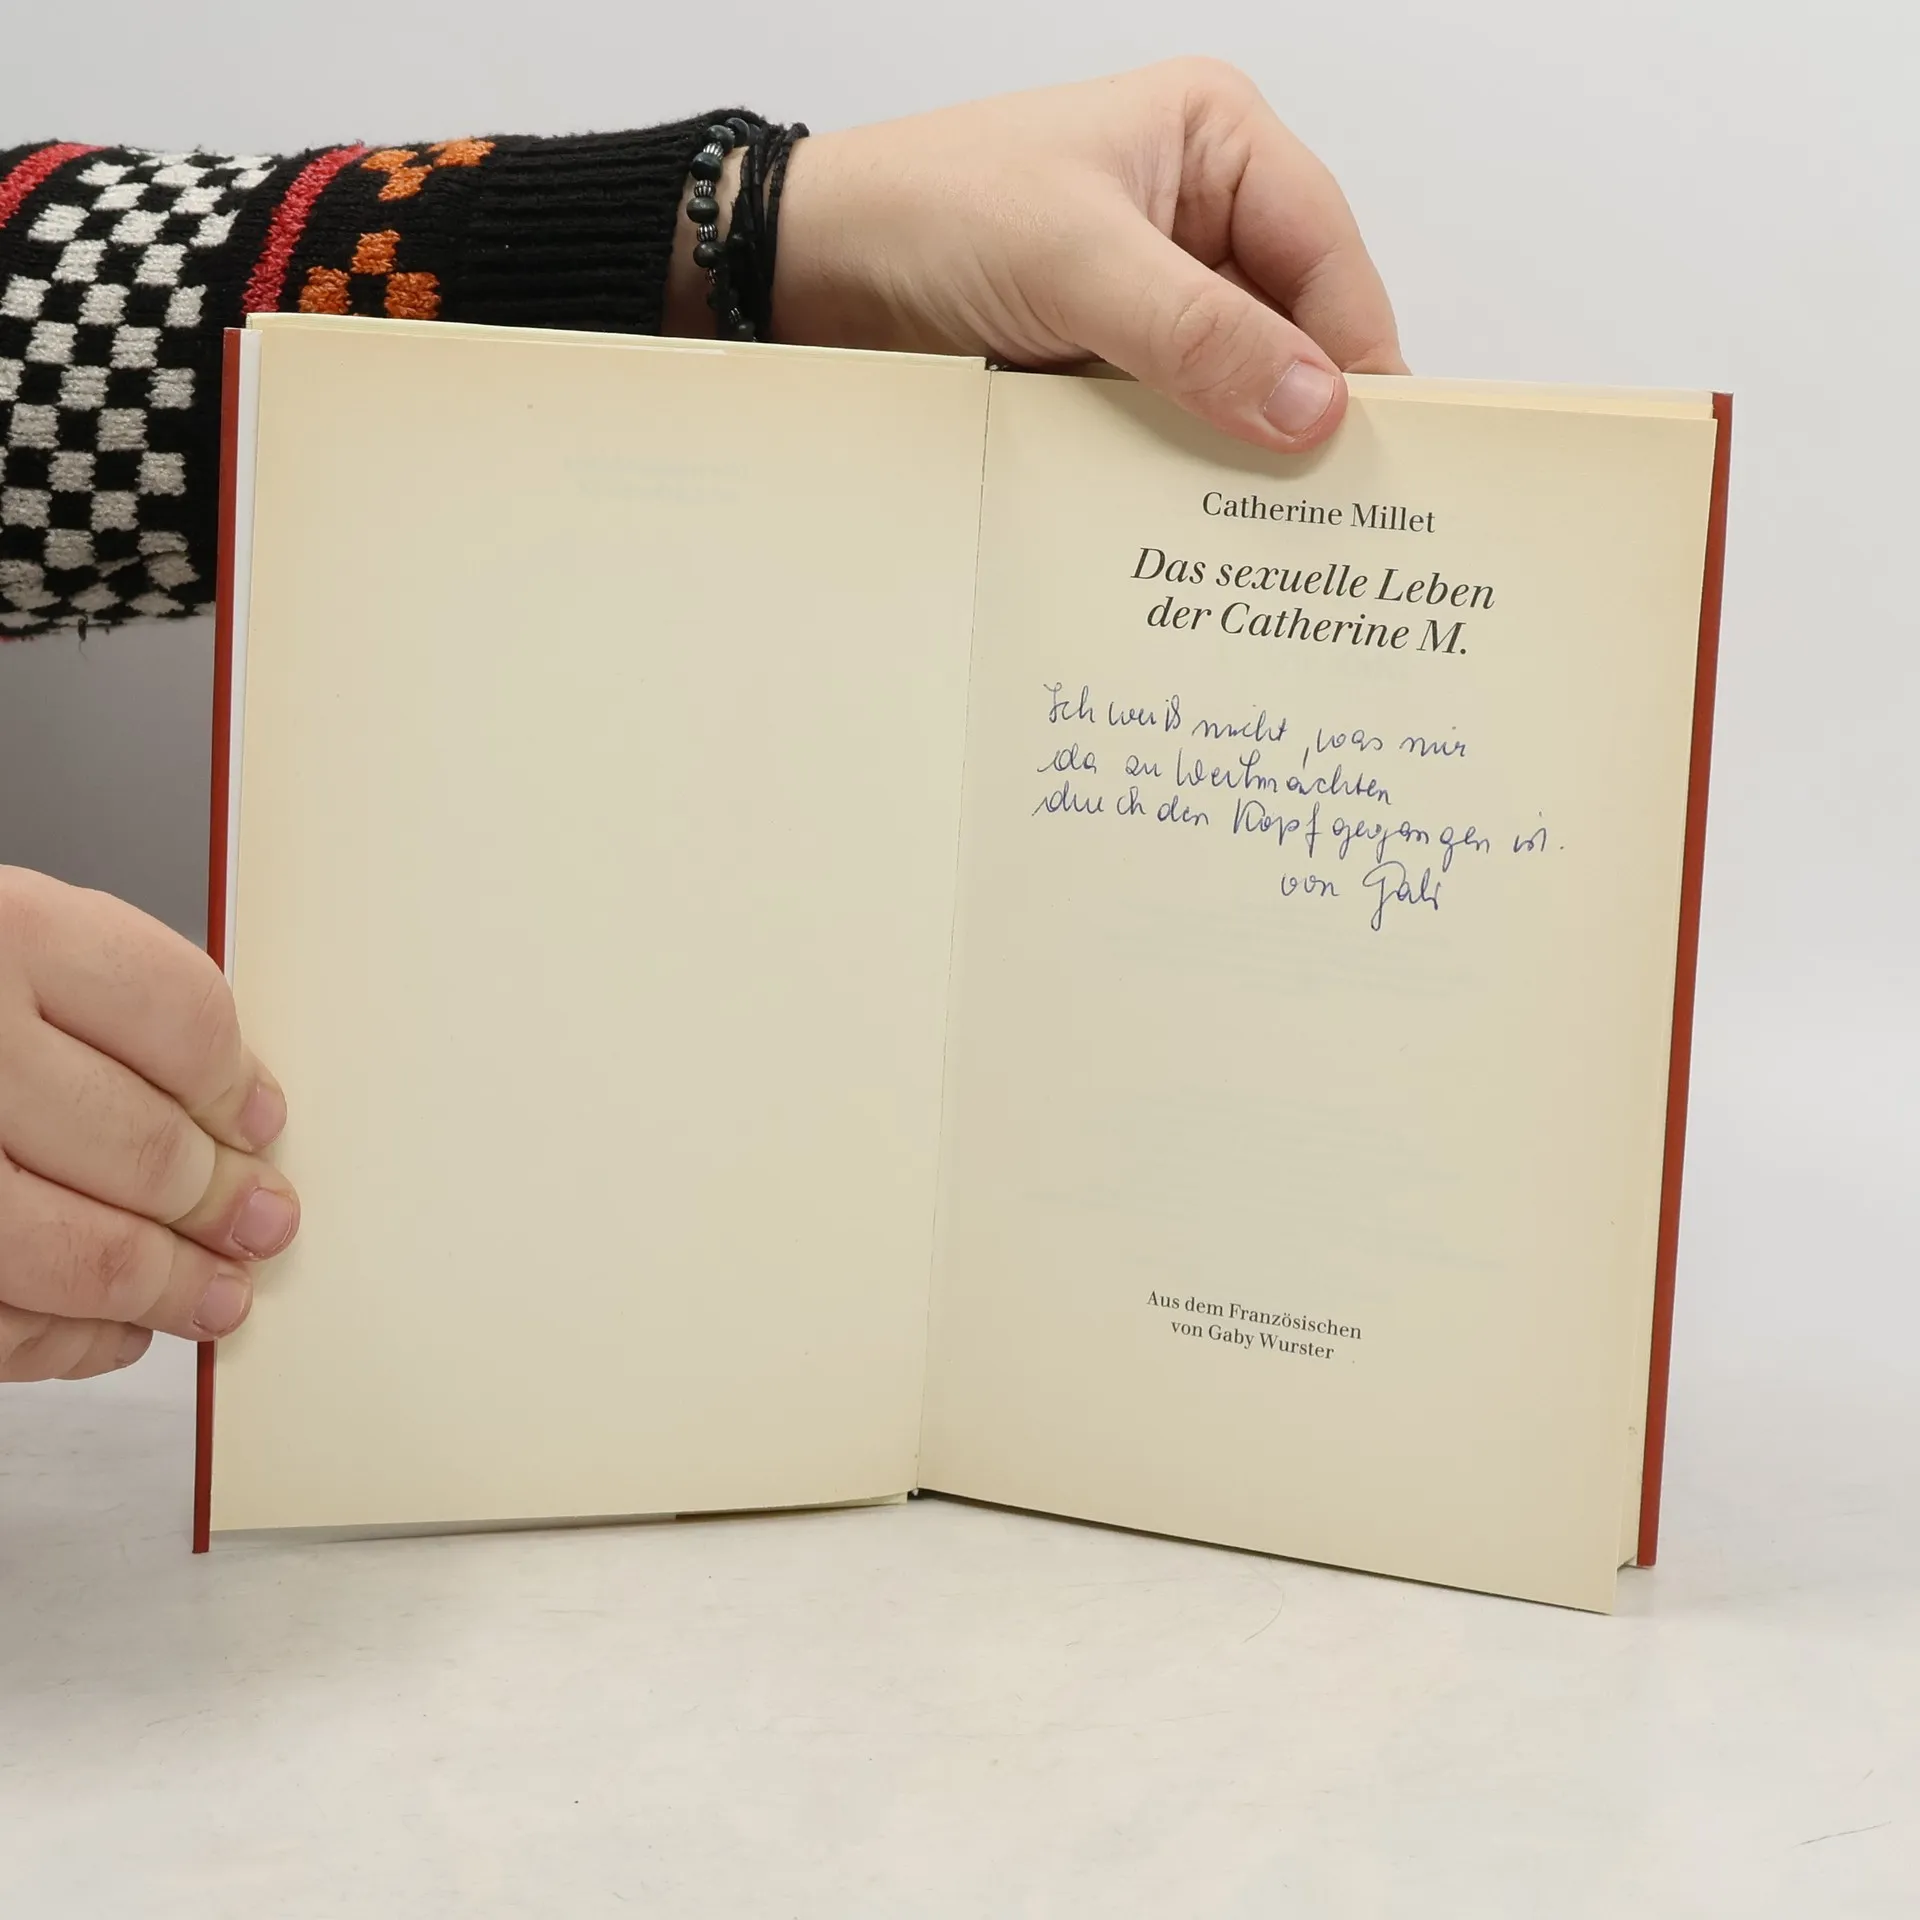 Catherine Millet
Das sexuelle Leben
der Catherine M.
Ich weiß nicht, was mir
da zu Weihnachten
durch den Kopf gegangen ist.
von
Aus dem Französischen
von Gaby Wurster